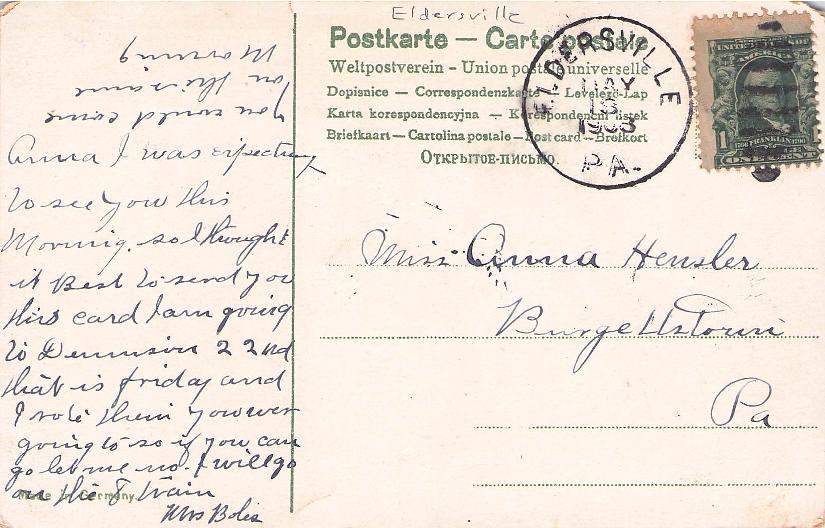 Eldersville
Postkarte — Carte postale
Weltpostverein – Union postale universelle
Dopisnice — Correspondenzkarte — Levelező-Lap
Karta korespondencyjna — Korespondencni listek
Briefkaart — Cartolina postale — Post card — Brefkort
Открытое-письмо.
ELDERSVILLE
MAY
18
1908
PA.
UNITED STATES OF
AMERICA
1 1706 FRANKLIN 1790 1
ONE CENT
Anna I was expecting
to see you this
Morning. so I thought
it Best to send you
this card I am going
to Dennison 22nd
that is friday and
I rote them you wer
going to so if you can
go let me no. I will go
on the 8 train
Mrs Boles
you could come
on the same
Morning
Miss Anna Hensler
Burgettstown
Pa
Made in Germany.